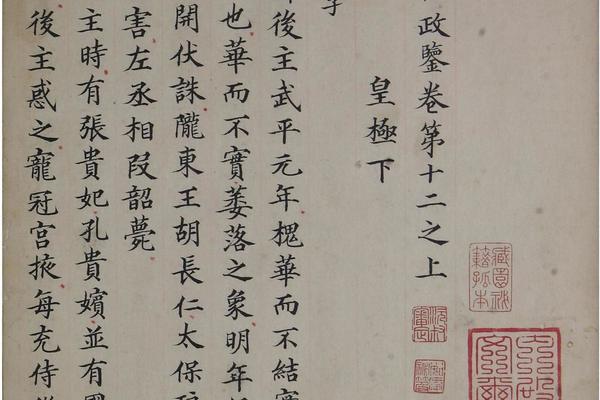 政鑒卷第十二之上
皇極下
後主武平元年槐華而不結實
也華而不實萎落之象明年
開伏誅隴東王胡長仁太保
害左丞相段韶薨
主時有張貴妃孔貴嬪並有
後主惑之寵冠宮掖每充侍
臧園祕
籍孤本